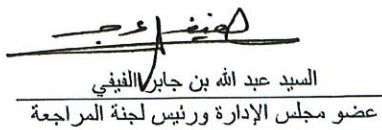 السيد عبد الله بن جابر الفيفي
عضو مجلس الإدارة ورئيس لجنة المراجعة